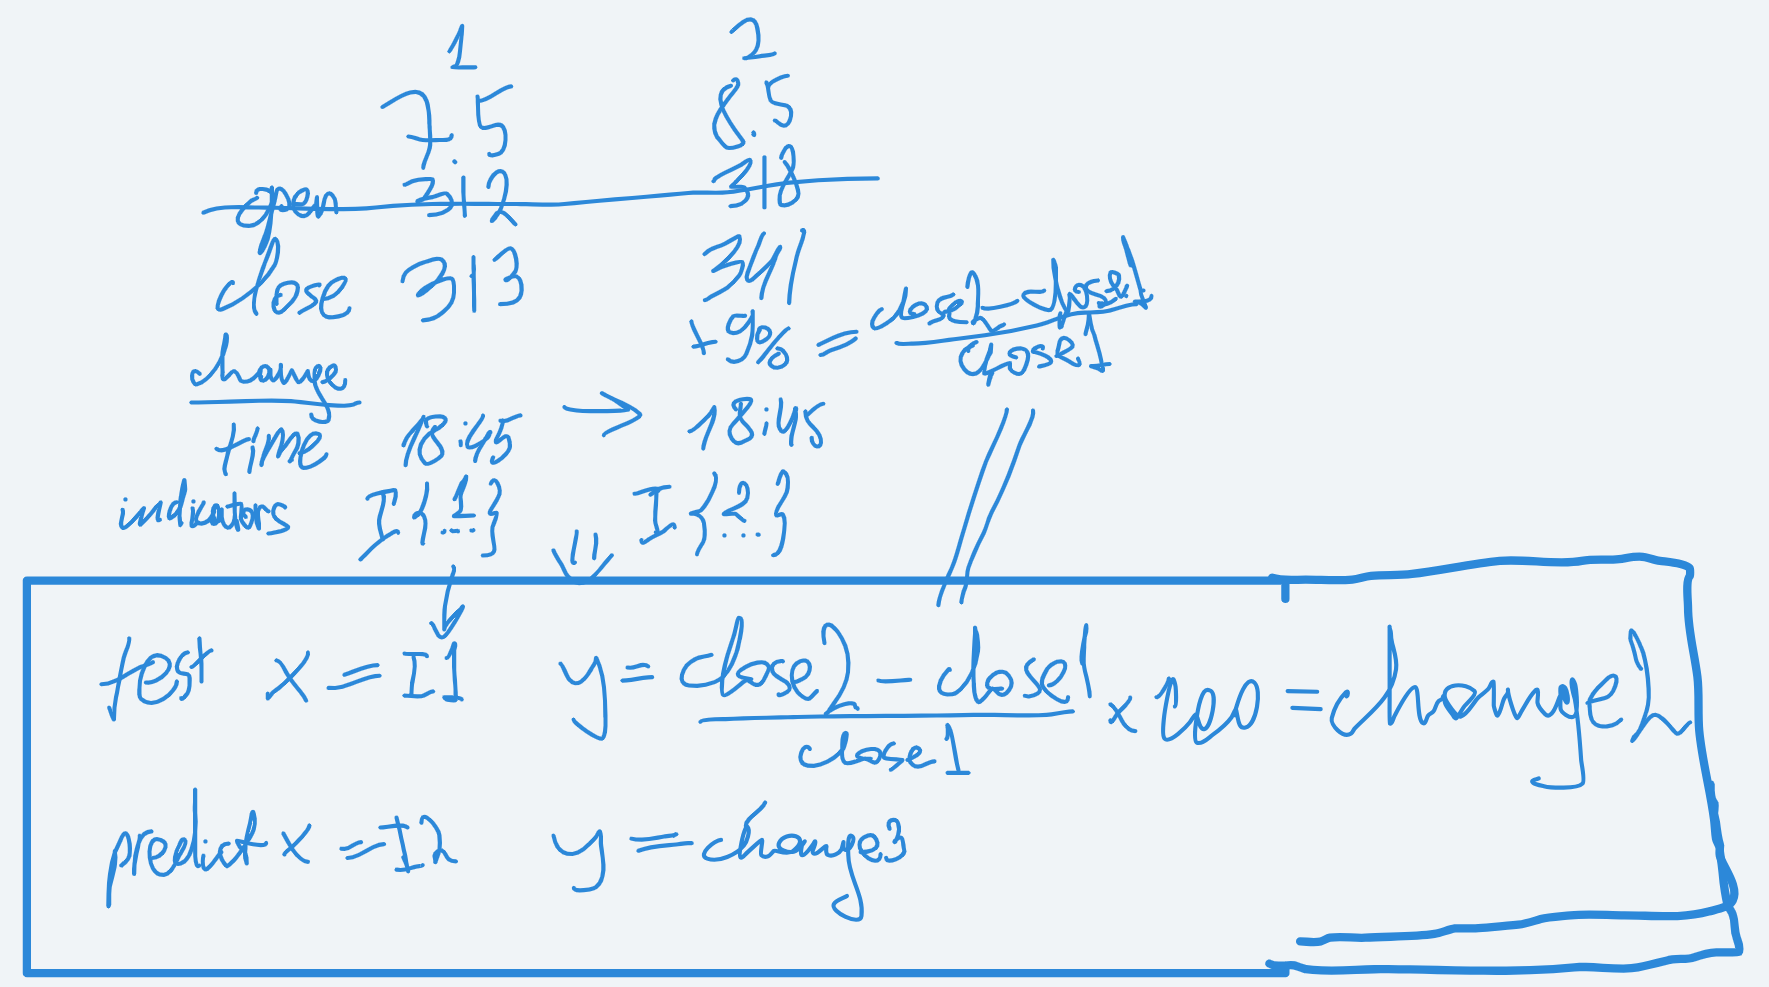 1 2
7.5 8.5
open 312 318
close 313 341
change +9% = close2 - close1
close1
time 18:45 → 18:45
indicators I{1...} I{2...}
test x = I1 y = close2 - close1 x 100 = change2
close1
predict x = I2 y = change3